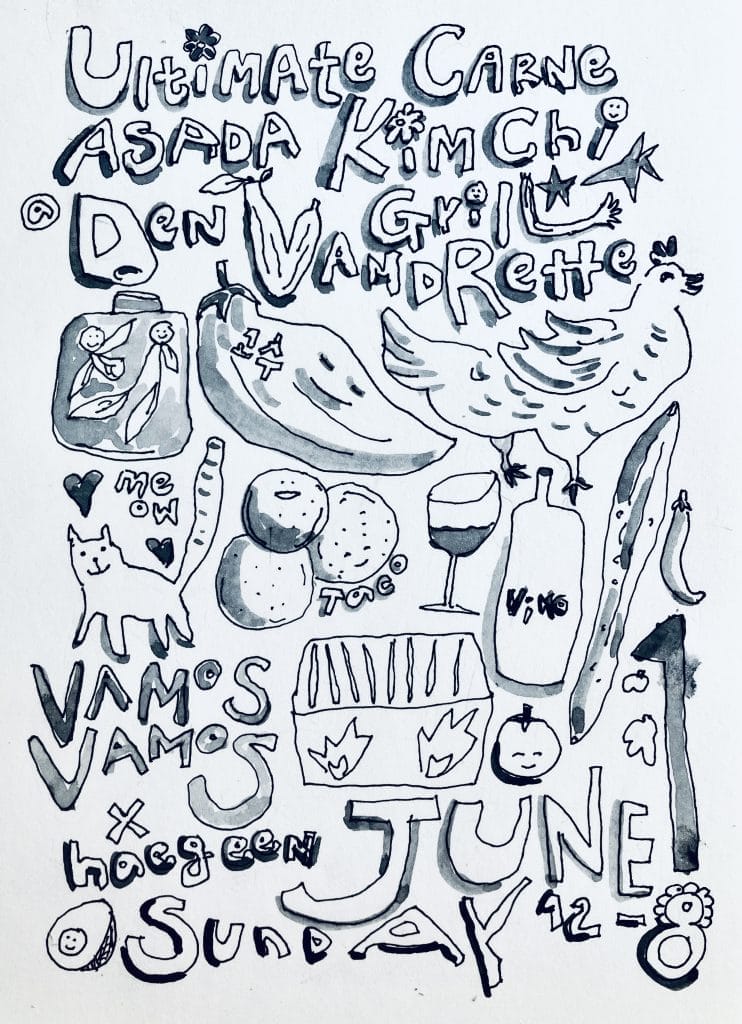 ULtiMAte CARNe
ASADA KimChi
GRiLL
@ DeN VANDRette
고추
meow
Taco
ViNo
VAMOS
VAMOS
x
haegeen
JUNE 1
SunDAY 12-8